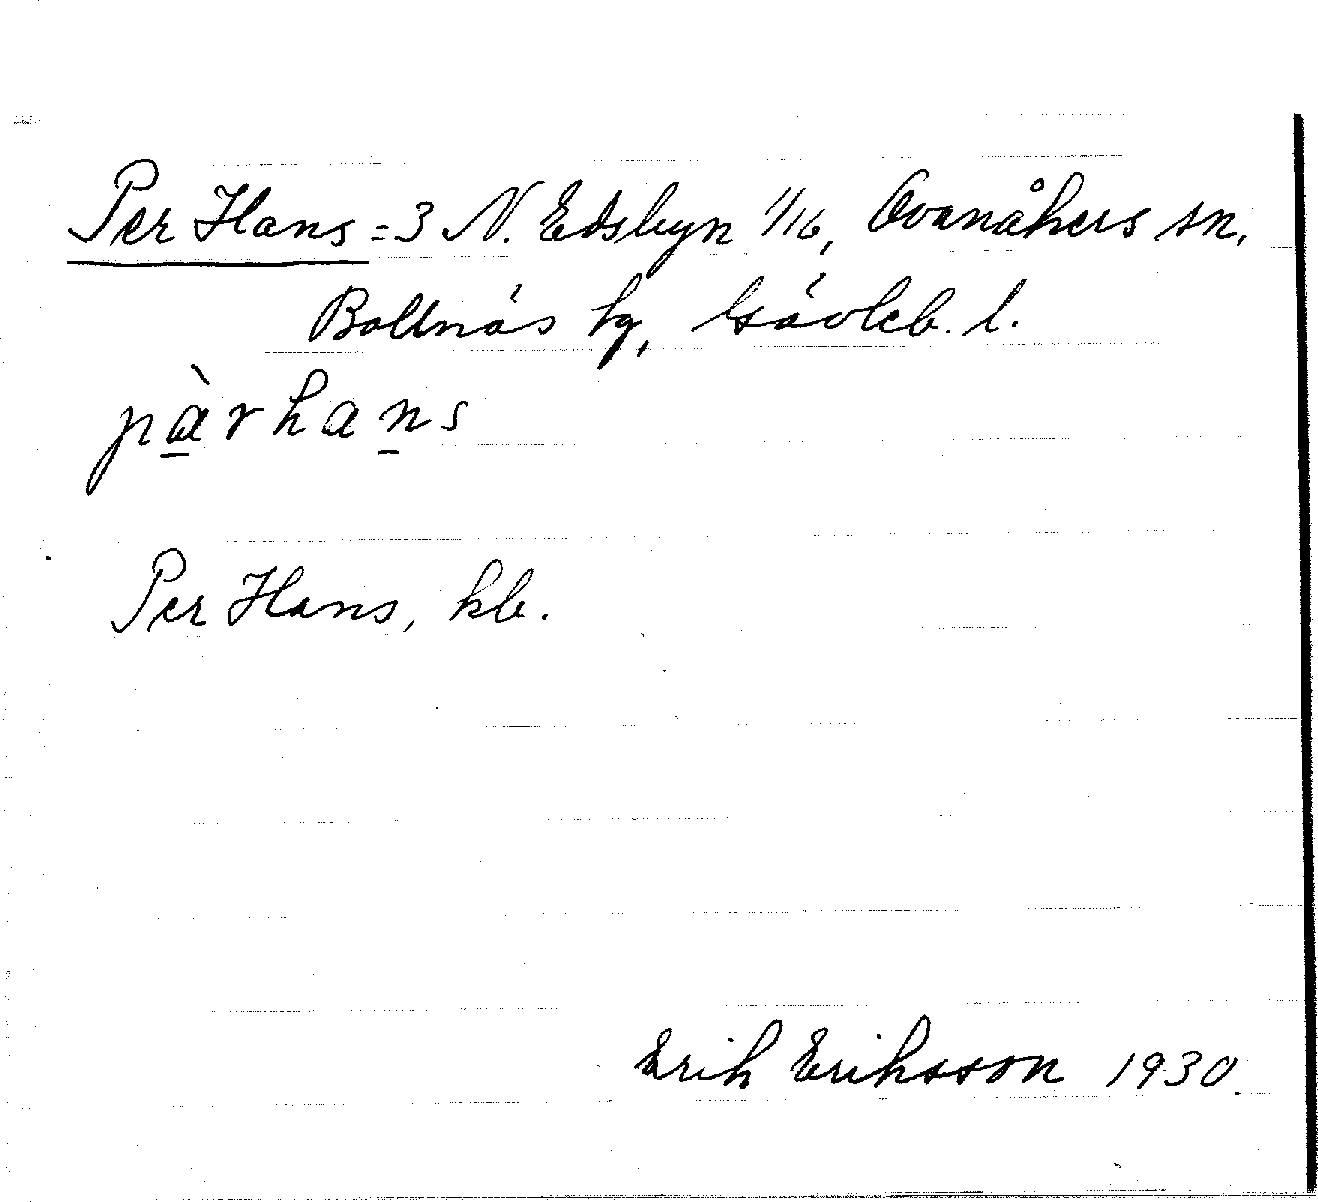 Per Hans = 3 N. Edsbyn 1/16, Ovanåkers sn.
Bollnäs tg, Gävleb. l.
pàrhans
Per Hans, kb.
Erik Eriksson 1930.